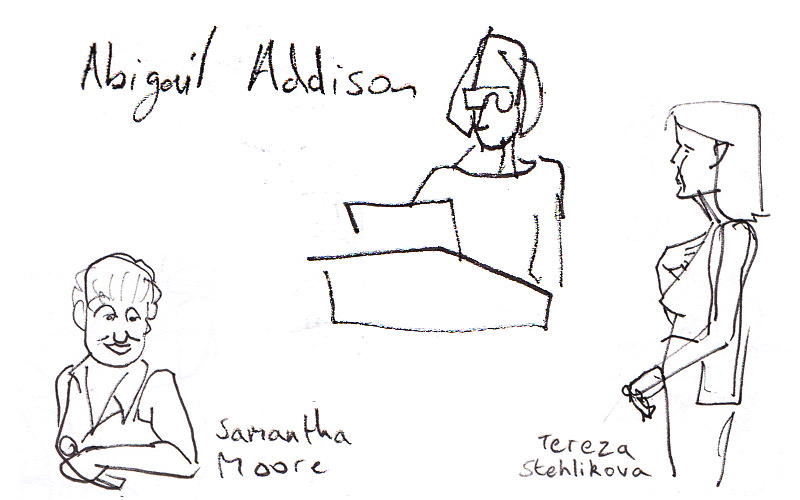 Abigail Addison
Samantha
Moore
Tereza
Stehlikova